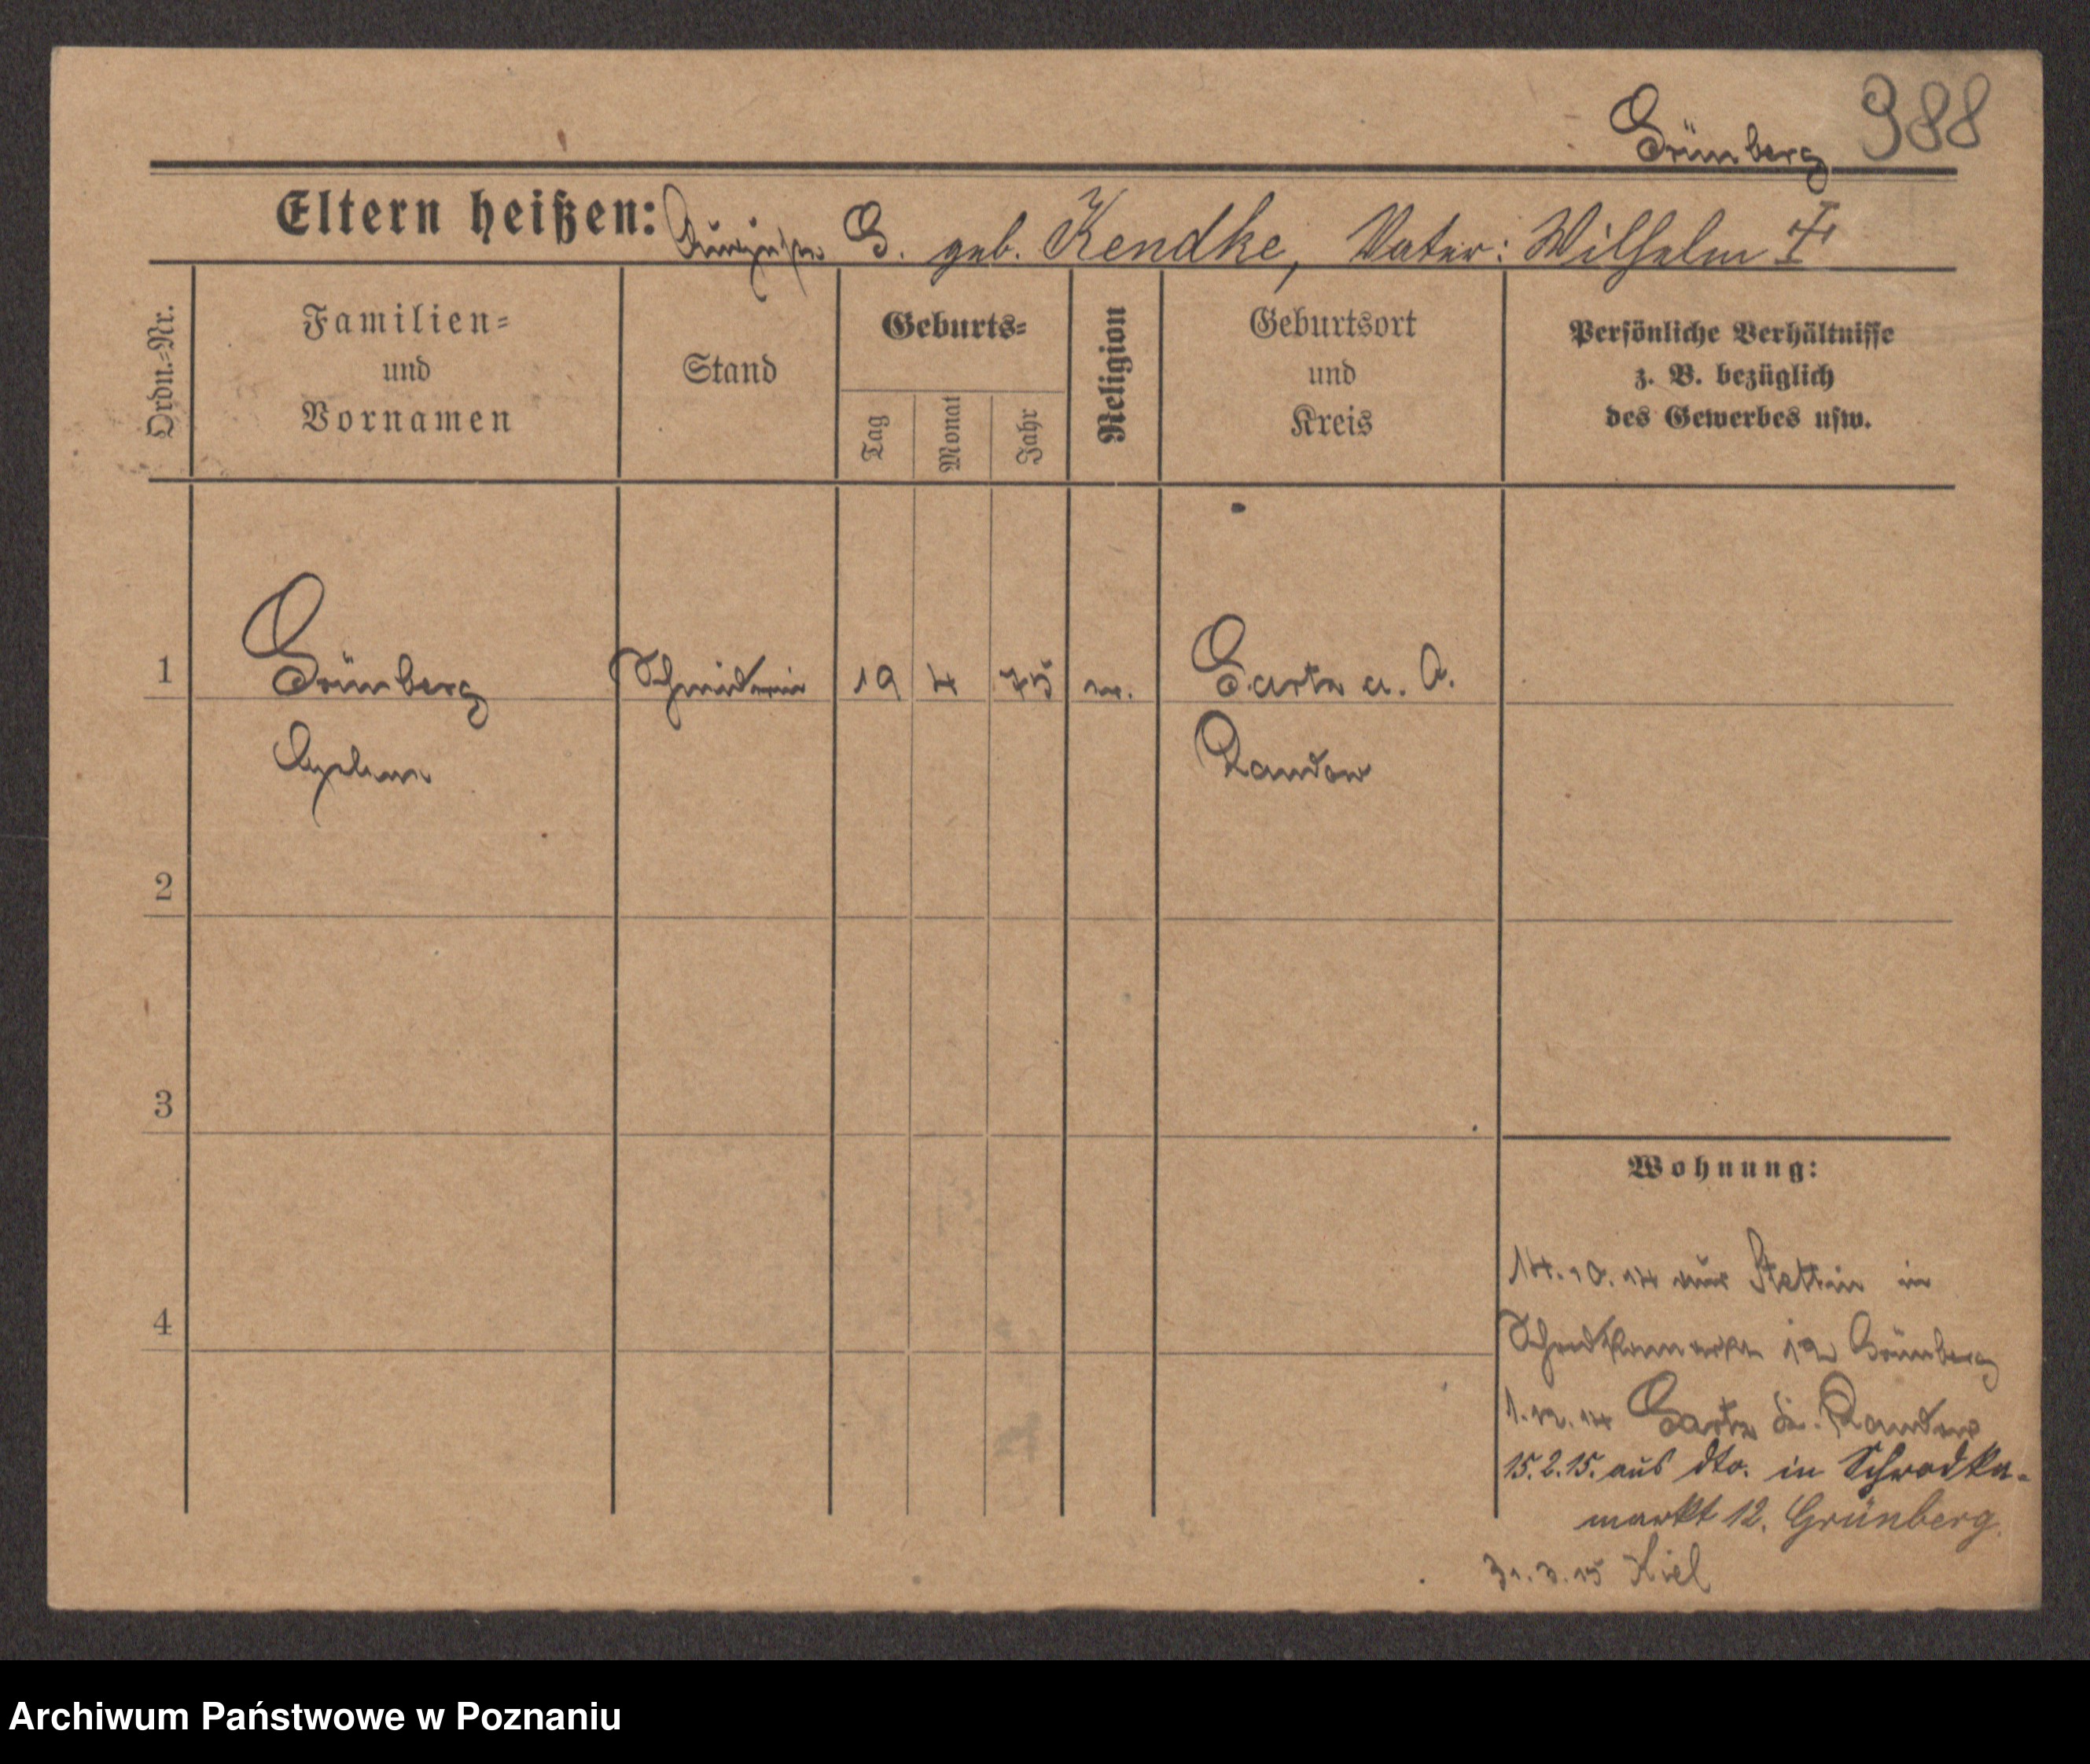 Grünberg 988
Eltern heißen: G. geb. Kendke, Vater: Wilhelm I
Ordn.-Nr.
Familien-
und
Vornamen
Stand
Geburts-
Tag
Monat
Jahr
Religion
Geburtsort
und
Kreis
Persönliche Verhältnisse
z. B. bezüglich
des Gewerbes usw.
1 Grünberg Schneiderin 19 4 75 ev. Gartz a. O.
Randow
2
3
4
Wohnung:
14.10.14 aus Stettin in
Schrodkamarkt 12 Grünberg
1.12.14 Gartz Randow
15.2.15. aus dto. in Schrodka-
markt 12. Grünberg.
31.3.15 Kiel
Archiwum Państwowe w Poznaniu